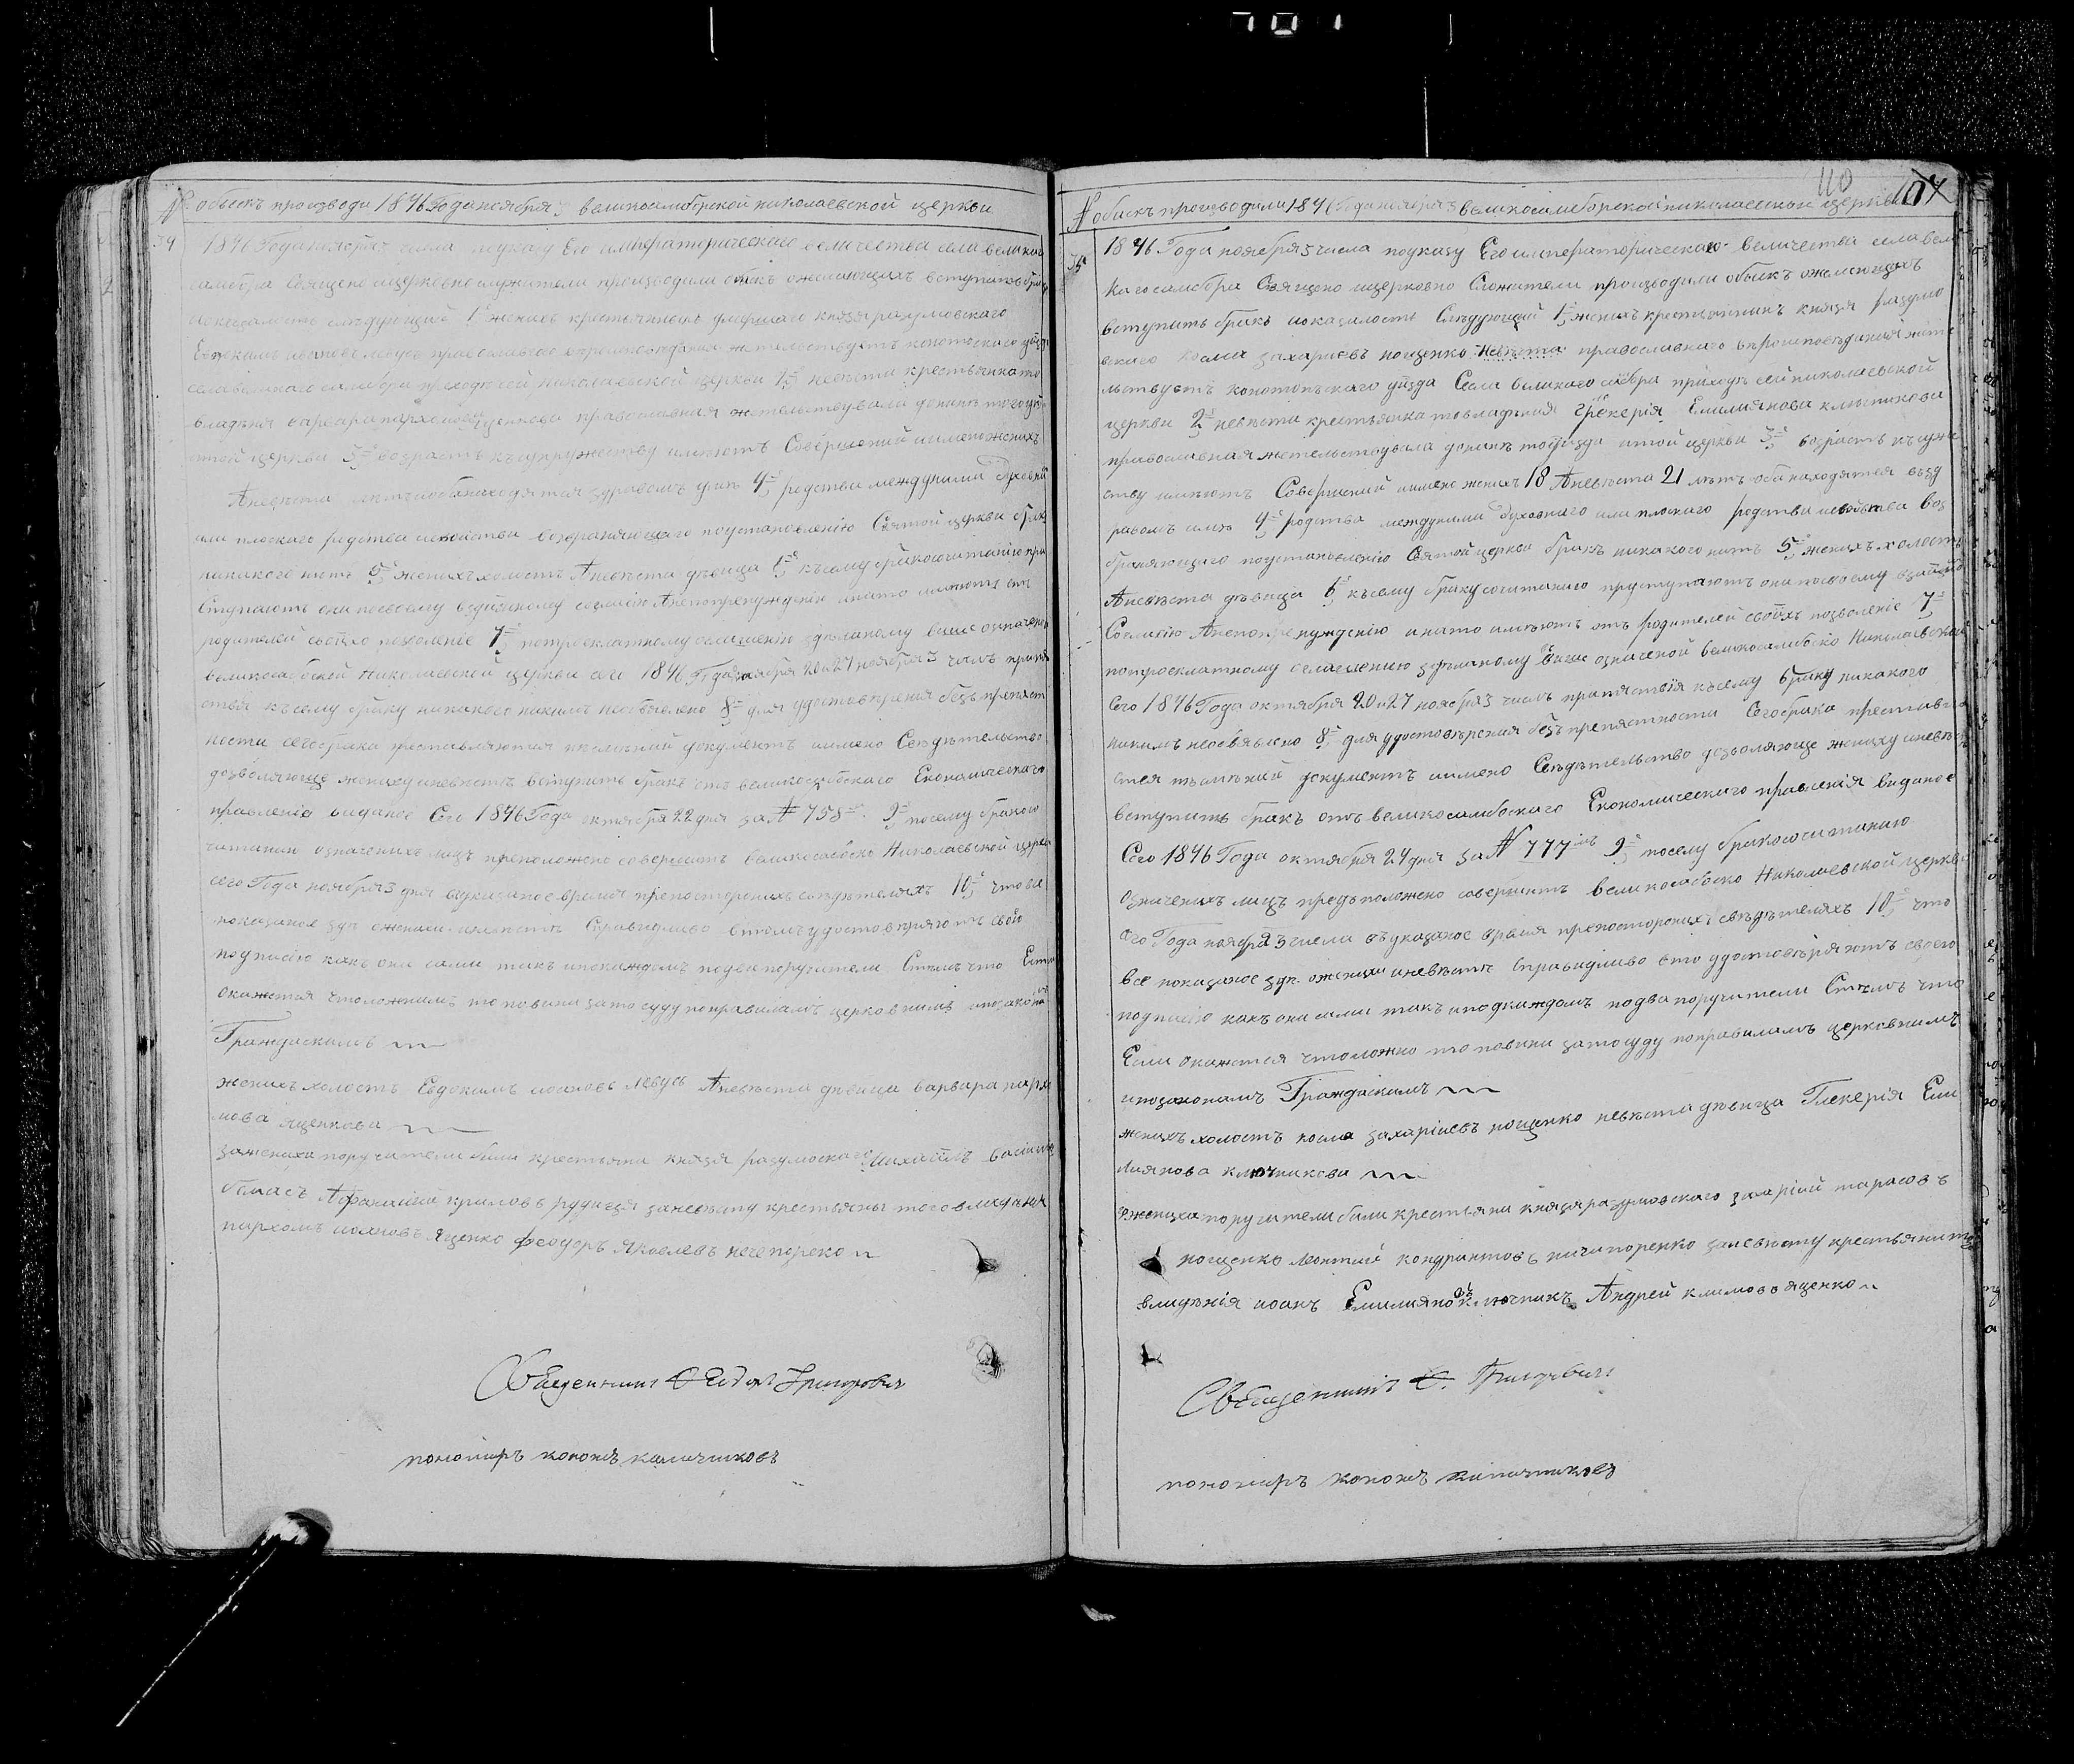 № обыскъ производи 1846 Года ноября 3 великосамборской николаевской церкви
34
1846 Года ноября числа по указу Его императорическаго величества села великаго
самбора Священо ицерковно служители производили обыскъ ожелающихъ вступить бракъ
иоказалость слѣдующий 1е женихъ крестьянинъ умершаго князя разумовскаго
Евдокимъ ивановъ левусъ православного вѣроисповѣдания жительствуетъ конотопскаго уѣзда
села великаго самбора приходѣ сей николаевской церкви 2е невѣста крестьянка того
владѣня варвара пархомова яценкова православная жительствувала донинѣ того уѣзда
итой церкви 3е возрастъ къ супружеству имѣютъ Совершений иимено женихъ
Аневѣста лѣтъ иоба находятся уздравомъ умѣ 4е родства между ними духовнаго
или плоскаго родства исвойства возбраняющаго поустановлению Святой церкви бракъ
никакого нѣтъ 5е женихъ холостъ Аневѣста дѣвица 6е къ сему бракосочитанию при
ступаютъ они посвоему взаимному согласию Анепопренуждению инато имѣютъ отъ
родителей своихъ позволение 7е потроекратному оглашению здѣланому више означеной
великосамбоской Николаевской церкви сего 1846 Года октября 20 и 27 ноября 3 числъ припят
ствия къ сему браку никакого никимъ необявлено 8е для удостовѣрения безъ препятст
ности сего брака преставляются писменний документъ иимено Свѣдѣтельство
дозволяюще жениху иневѣстѣ вступить бракъ отъ великосамбоскаго Економическаго
правления виданое Сего 1846 Года октября 22 дня за № 758мъ 9е посему бракосо
читанию означенихъ лицъ преположено совершить великосамбоско Николаевской церкви
сего Года ноября 3 дня въуказаное время припостороннихъ свѣдѣтеляхъ 10е что все
показаное здѣ ожених иневѣстѣ Справидливо втомъ удостовѣряютъ свою
подписию какъ они сами такъ ипокаждомъ подва поручители Стѣмъ что Если
окажется что ложнимъ то повини зато суду поправиламъ церковнимъ ипозаконамъ
Гражданскимъ
женихъ холостъ Евдокимъ иоановъ левусъ Аневѣста дѣвица варвара пархо
мова яценкова
зажениха поручители были крестьяни князя разумоскаго Михаилъ василиевъ
Афанасий криловъ рудиця заневѣсту крестьяны того владѣния
пархомъ иоановъ яценко феодоръ яковлевъ нечепоренко
Священникъ Феодоръ Григоровичъ
пономарь кононъ калачниковъ
110
107
№ обыскъ производили 1846 Года ноября 3 великосамборской николаевской церкви
35
1846 Года ноября 3 числа поуказу Его императорическаго величества села вели
каго самбора Священо ицерковно Служители производили обыскъ ожелающихъ
вступить бракъ иоказалость Слѣдующий 1е женихъ крестьянинъ князя разумо
вскаго косма захариевъ нощенко невѣста православнаго вѣроисповѣдания жите
льствуетъ конотопъскаго уѣзда Села великаго самбора приходъ сей николаевской
церкви 2е невѣста крестьянка товладѣния Глекерія Емилиянова ключникова
православная жительствувала донинѣ того уѣзда итой церкви 3е возрастъ къ супруже
ству имѣютъ Совершений иимено женихъ 18 Аневѣста 21 лѣтъ оба находятся възд
равомъ имѣ 4е родства между ними духовнаго или плоскаго родства исвойства воз
браняющаго поустановлению Святой церкви бракъ никакого нѣтъ 5е женихъ холостъ
Аневѣста дѣвица 6е къ сему браку сочитанию приступаютъ они посвоему взаимно
Согласию Анепопренуждению инато имѣютъ отъ родителей своихъ позволение 7е
потроекратному оглашению здѣланому више означеной великосамбоско Николаевской
Сего 1846 Года октября 20 и 27 ноября 3 числъ припятствия къ сему браку никакого
никимъ необявлено 8е для удостовѣрения безъ препятстности Сего брака преставляю
стся писменний документъ иимено Свѣдѣтельство дозволяюще жениху иневѣстѣ
вступить бракъ отъ великосамбоскаго Економическаго правления виданое
Сего 1846 Года октября 24 дня за № 777мъ 9е посему бракосочитанию
Означенихъ лицъ предъположено совершить великосамбоско Николаевской церкви
сего Года ноября 3 числа въуказаное время припостороннихъ свѣдѣтеляхъ 10е что
все показаное здѣ ожених иневѣстѣ Справидливо вто удостовѣряютъ своею
подписию какъ они сами такъ ипокаждомъ подва поручители Стѣмъ что
Если Окажется что ложно то повини зато суду поправиламъ церковнимъ
ипозаконамъ Гражданскимъ
женихъ холостъ косма захариевъ нощенко невѣста дѣвица Глекерія Еми
лиянова ключникова
зажениха поручители били крестьяни князя разумовскаго захарий тарасовъ
нощенко леонтий кондратовъ ничипоренко заневѣсту крестьяни того
владѣнія иоанъ Емилияновъ ключникъ Андрей климовъ яценко
Священникъ Ѳ. Григоровичъ
пономарь кононъ калачниковъ